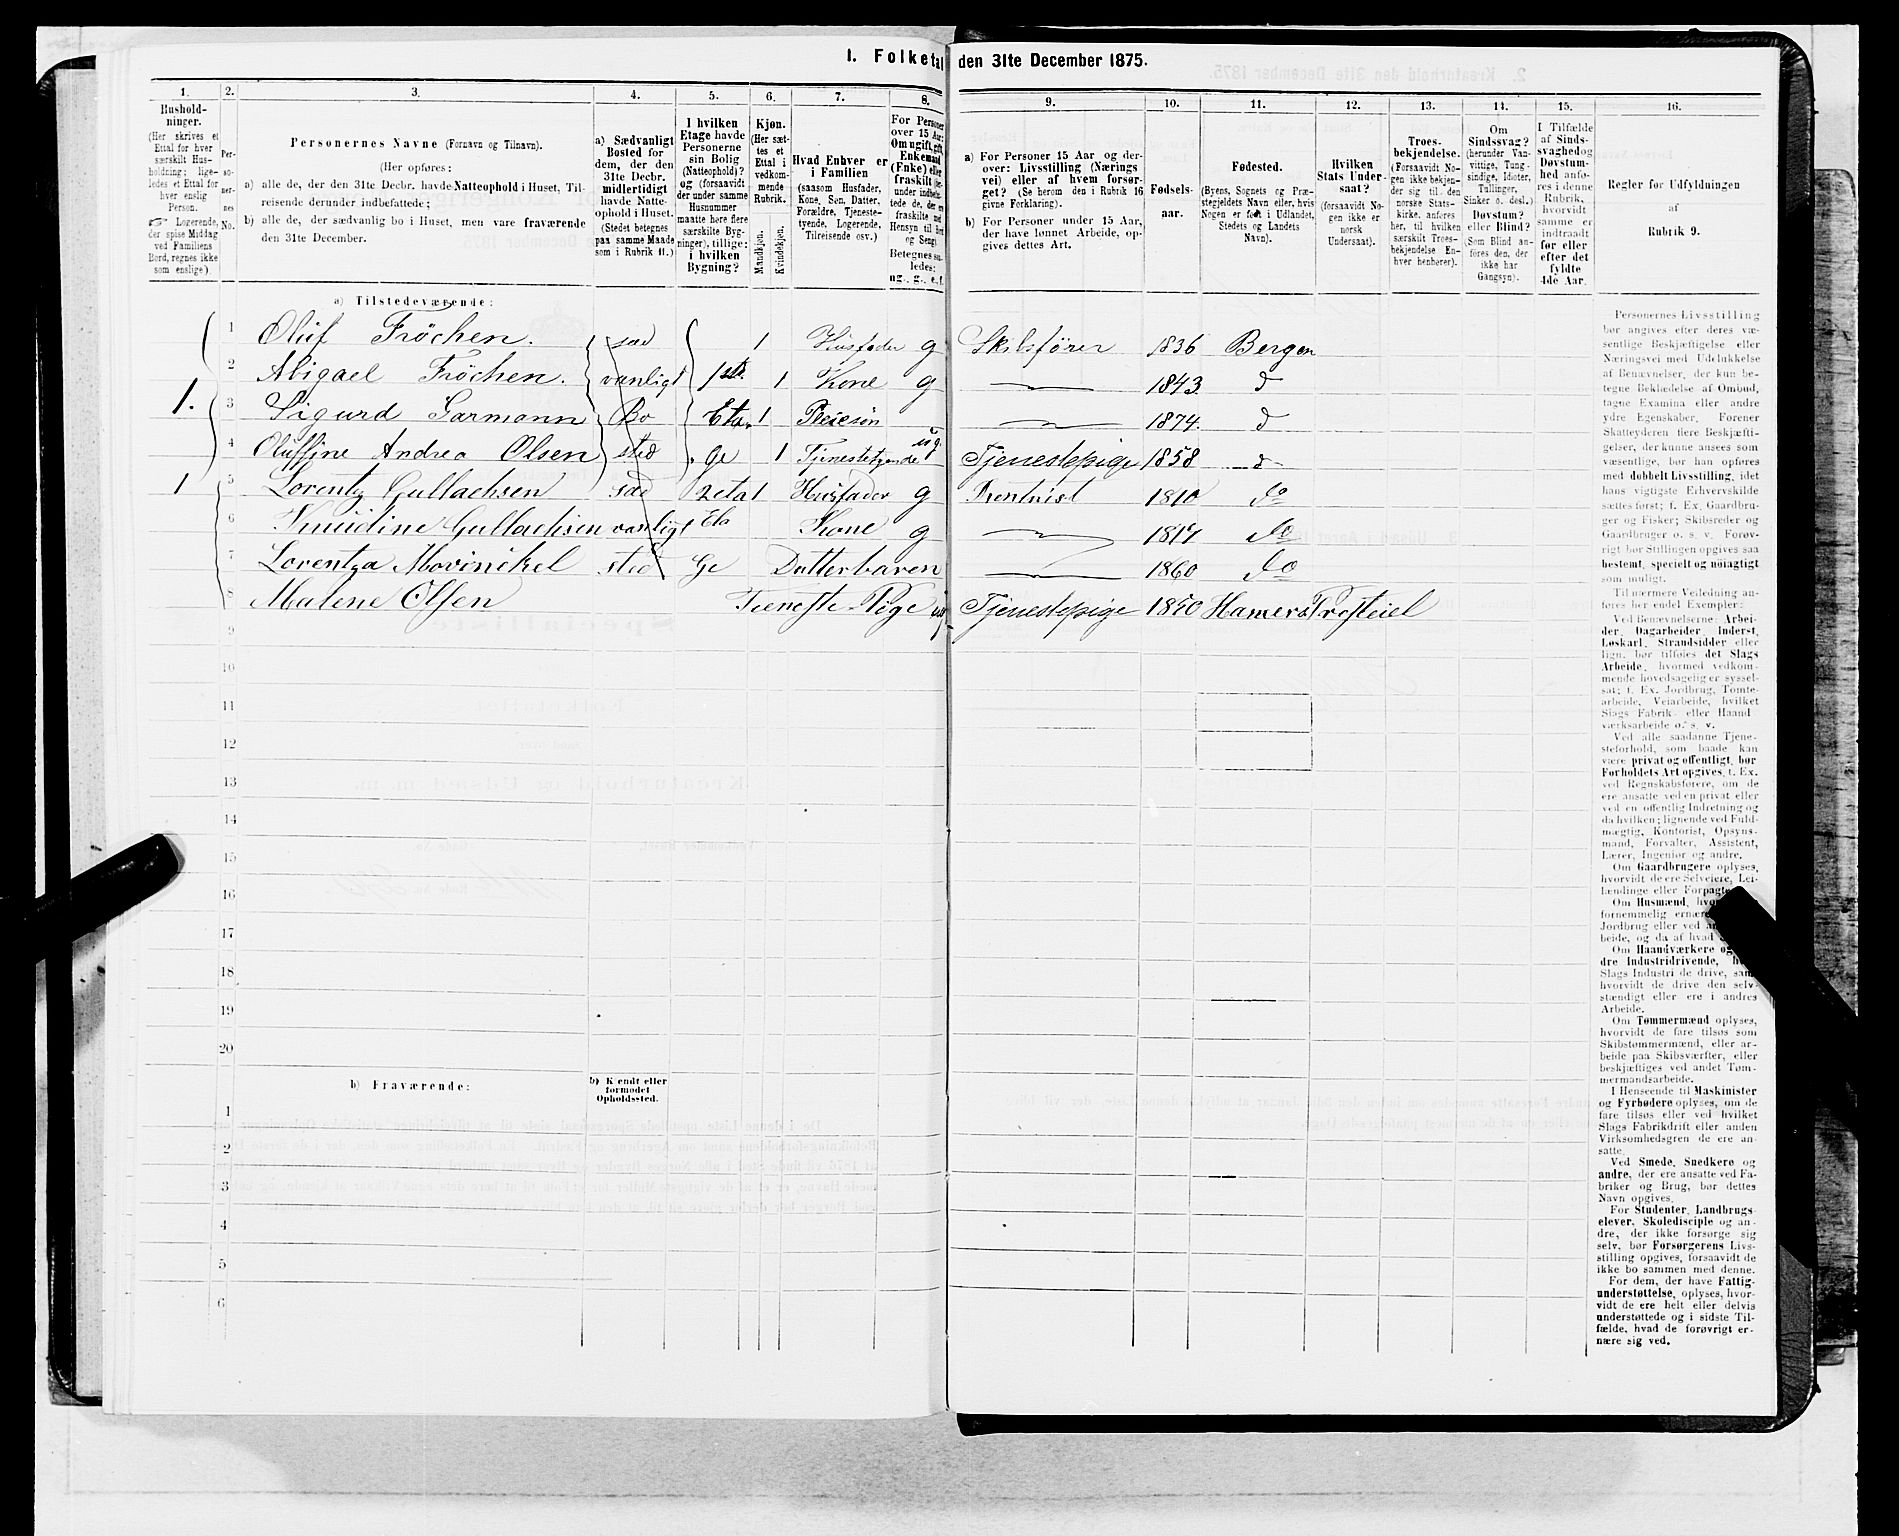 1. Folketal den 31te December 1875.
1. 2. 3. 4. 5. 6. 7. 8. 9. 10. 11. 12. 13. 14. 15. 16.
Hushold-
ninger.
(Her skrives et
Ettal for hver
særskilt Hus-
holdning; lige-
ledes et Ettal for
hver enslig
Person.
☞ Logerende,
der spise Middag
ved Familiens
Bord, regnes ikke
som enslige).
Per-
so-
ner-
nes
No.
Personernes Navne (Fornavn og Tilnavn).
(Her opføres:
a) alle de, der den 31te Decbr. havde Natteophold i Huset, Til-
reisende derunder indbefattede;
b) alle de, der sædvanlig bo i Huset, men vare fraværende
den 31te December.
a) Sædvanligt
Bosted for
dem, der den
31te Decbr.
midlertidigt
havde Natte-
ophold i Huset.
(Stedet betegnes
paa samme Maade
som i Rubrik 11.)
I hvilken
Etage havde
Personerne
sin Bolig
(Natteophold)?
og (forsaavidt
der under samme
Husnummer
maatte høre flere
særskilte Byg-
ninger), tillige:
i hvilken
Bygning?
Kjøn.
(Her sæt-
tes et
Ettal i
vedkom-
mende
Rubrik.
Mandkjøn.
Kvindekjøn.
Hvad Enhver er
i Familien
(saasom Husfader,
Kone, Søn, Datter,
Forældre, Tjeneste-
tyende, Logerende,
Tilreisende osv.)
For Personer
over 15 Aar:
Om ugift, gift,
Enkemand
(Enke) eller
fraskilt
og Seng)
Betegnes saa-
ledes:
ug., g., e., f.
a) For Personer 15 Aar og der-
over: Livsstilling (Nærings
vei) eller af hvem forsør-
get? (Se herom den i Rubrik 16
givne Forklaring).
b) For Personer under 15 Aar,
der have lønnet Arbeide, op-
gives dettes Art.
Fødsels-
aar.
Fødested.
(Byens, Sognets og Præ-
stegjeldets Navn eller, hvis
Nogen er født i Udlandet,
Stedets og Landets
Navn).
Hvilken
Stats Under-
saat?
(forsaavidt No-
gen ikke er
norsk
Undersaat).
Troes-
bekjendelse.
(Forsaavidt No-
gen ikke bekjen-
der sig til den
norske Stats-
kirke, anføres
her, til hvilken
særskilt Troes-
bekjendelse En-
hver henhører).
Om
Sindssvag?
(herunder Van-
vittige, Tung-
sindige, Idioter,
Tullinger,
Sinker o. desl.)
Døvstum?
eller Blind?
(Som Blind an-
føres den, der
ikke har
Gangsyn).
I Tilfælde
af Sinds-
svaghed og
Døvstum-
hed anfø-
res i denne
Rubrik,
hvorvidt
samme er
indtraadt
før eller
efter det
fyldte
4de Aar.
Regler for Udfyldningen
af
Rubrik 9.
a) Tilstedeværende:
1 Oluf Fröchen. sæd 1 Husfader g Skibsfører 1836 Bergen
2 Abigael Fröchen. vanligt 1ste 1 Kone g 1843 d
1. 3 Sigurd Garmann Bo Eta 1 Pleiesøn 1874. d
4 Oluffine Andrea Olsen sted ge 1 Tjenestetyende ug. Tjenestepige 1858 d
1 5 Lorentz Gullachsen sæd 2eta 1 Husfader g Rentnist 1810 do
6 Knudine Gullachsen vanligt Eta Kone g 1817 do
7 Lorentza Movinckel sted Ge Datterbaren 1860 do
8 Malene Olsen Tieneste Pige ug Tjenestepige 1850 Hamers Presteiel
9
10
11
12
13
14
15
16
17
18
19
20
b) Fraværende:
b) Kjendt eller
formodet
Opholdssted.
1
2
3
4
5
6
Personernes Livsstilling
bør angives efter deres væ-
sentlige Beskjæftigelse eller
Næringsvei med Udelukkelse
af Benævnelser, der kun be-
tegne Beklædelse af Ombud,
tagne Examina eller andre
ydre Egenskaber. Forener
Skatteyderen flere Beskjæfti-
gelser, der kunne ansees som
væsentlige, bør han opføres
med dobbelt Livsstilling, idet
hans vigtigste Erhvervskilde
sættes først; f. Ex. Gaardbru-
ger og Fisker; Skibsreder og
Gaardbruger o. s. v. Forøv-
rigt bør Stillingen opgives saa
bestemt, specielt og nøiagtigt
som muligt.
Til nærmere Veiledning an-
føres her endel Exempler:
Ved Benævnelserne: Arbei-
der, Dagarbeider, Inderst,
Løskarl, Strandsidder eller
lign. bør tilføies det Slags
Arbeide, hvormed vedkom-
mende hovedsagelig er syssel-
sat; f. Ex. Jordbrug, Tomte-
arbeide, Veiarbeide, hvilket
Slags Fabrik- eller Haand
værksarbeide o. s. v.
Ved alle saadanne Tjene-
steforhold, som baade kan
være privat og offentligt, bør
Forholdets Art opgives, f. Ex.
ved Regnskabsførere, om de
ere ansatte ved en privat eller
ved en offentlig Indretning og
da hvilken; lignende ved Fuld-
mægtig, Kontorist, Opsyns-
mand, Forvalter, Assistent,
Lærer, Ingeniør og andre.
Om Gaardbrugere oplyses,
hvorvidt de ere Selveiere, Lei-
lændinge eller Forpagtere
Om Husmænd,
fornemmelig ernære
Jordbrug eller ved
beide, og da af hvad
Om Haandværkere og
dre Industridrivende,
Slags Industri de drive, samt
hvorvidt de drive den selv-
stændigt eller ere i andres
Arbeide.
Om Tømmermænd oplyses,
hvorvidt de fare tilsøs som
Skibstømmermænd, eller ar-
beide paa Skibsværfter, eller
beskjæftiges ved andet Tøm-
mermandsarbeide.
I Henseende til Maskinister
og Fyrbødere oplyses, om de
fare tilsøs eller ved hvilket
Slags Fabrikdrift eller anden
Virksomhedsgren de ere an-
satte.
Ved Smede, Snedkere og
andre, der ere ansatte ved Fa-
briker og Brug, bør dettes
Navn opgives.
For Studenter, Landbrugs-
elever, Skoledisciple og an-
dre, der ikke forsørge sig
selv, bør Forsørgerens Livs-
stilling opgives, forsaavidt de
ikke bo sammen med denne.
For dem, der have Fattig-
understøttelse, oplyses, hvor-
vidt de ere helt eller delvis
understøttede og i sidste Til-
fælde, hvad de forøvrigt er-
nære sig ved.